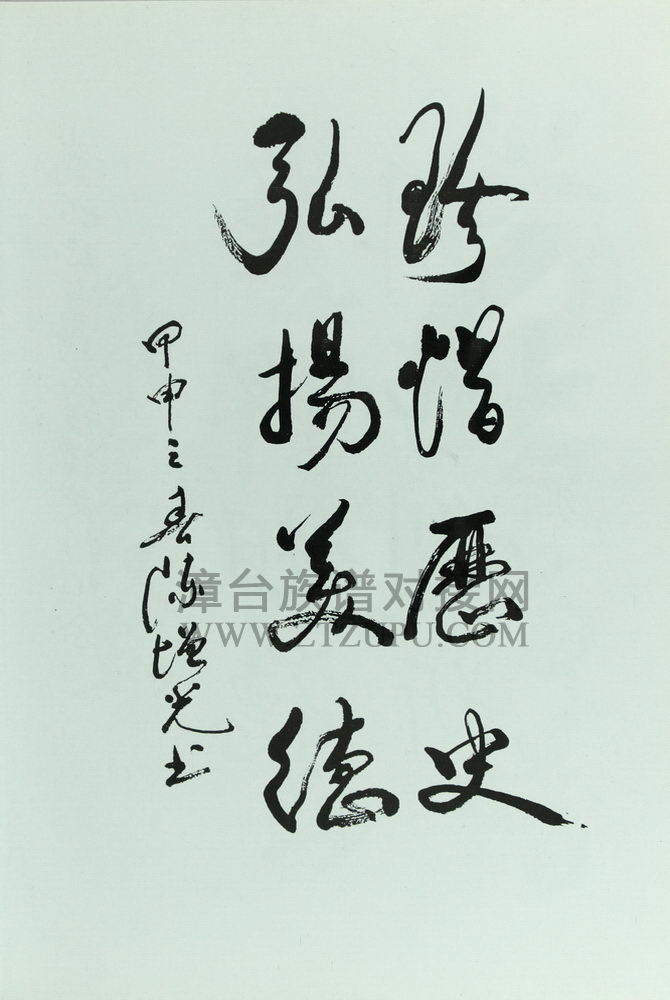 珍惜歷史
弘揚美德
甲申之春陳增光书
漳台族谱对接网
WWW.ZTZUPU.COM